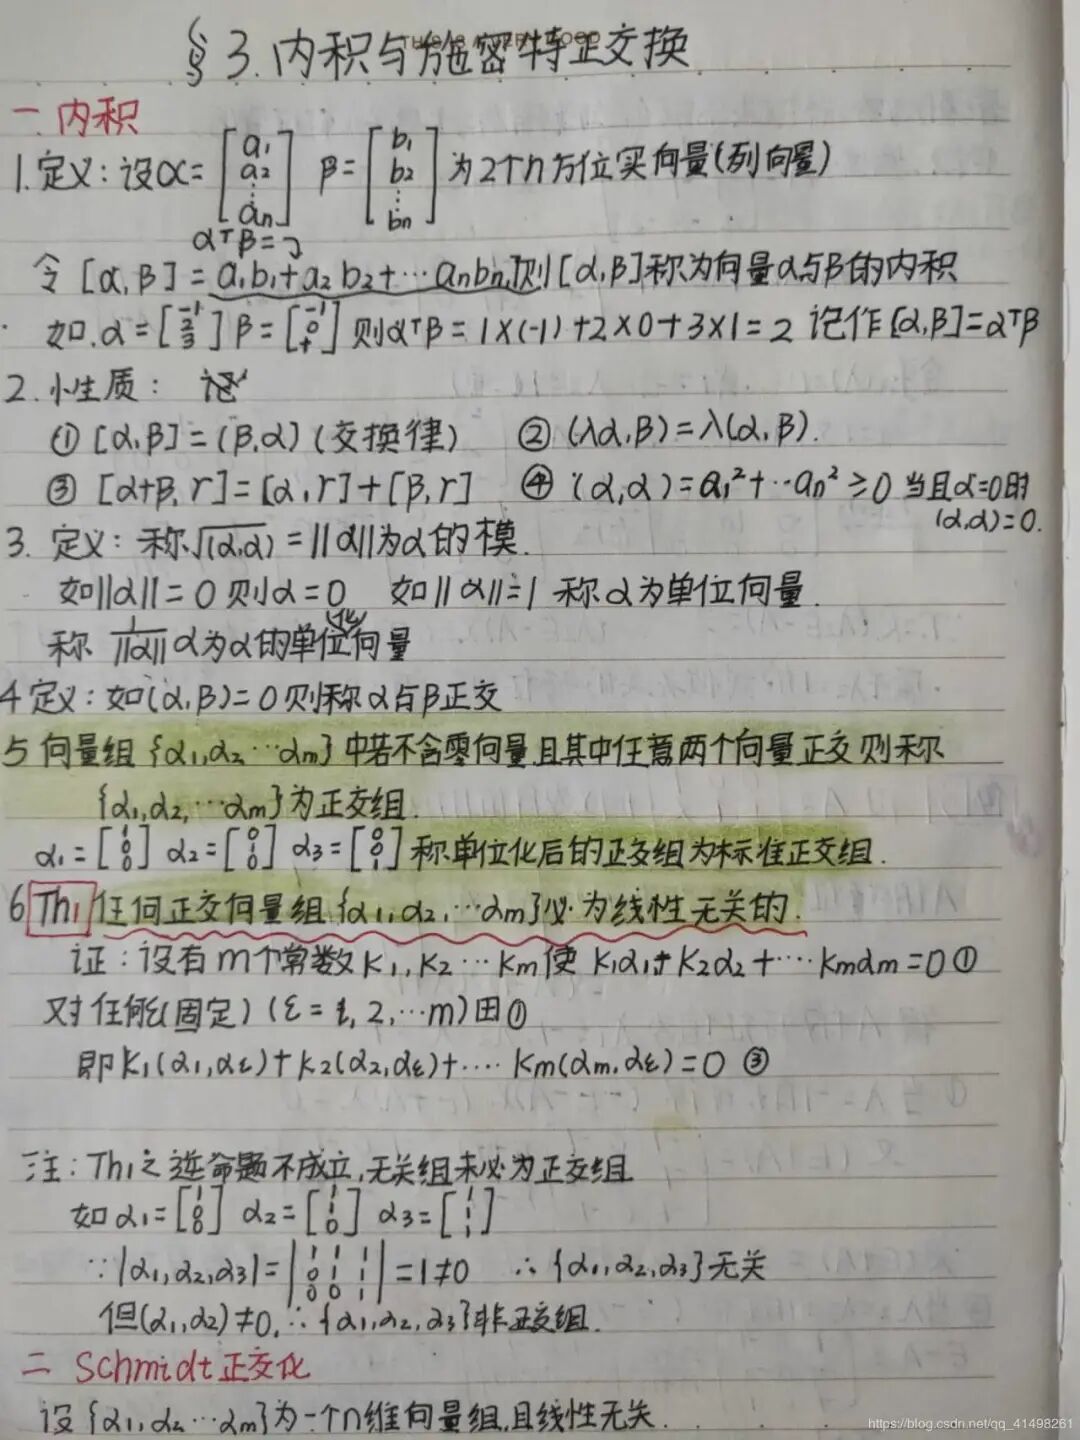 §3.内积与施密特正交换
一.内积
1.定义:设α=[a₁ a₂ ⋮ aₙ] β=[b₁ b₂ ⋮ bₙ]为2个n方位实向量(列向量)
αᵀβ=
令[α,β]=a₁b₁+a₂b₂+…aₙbₙ,则[α,β]称为向量α与β的内积
如.α=[ 2 3] β=[-1 0 ]则αᵀβ=1×(-1)+2×0+3×1=2 记作[α,β]=αᵀβ
2.小性质:
①[α,β]=(β,α)(交换律) ②(λα,β)=λ(α,β).
③[α+β,r]=[α,r]+[β,r] ④(α,α)=a₁²+…aₙ²≥0 当且α=0时
(α,α)=0.
3.定义:称√(α,α)=||α||为α的模.
如||α||=0则α=0 如||α||=1 称α为单位向量.
称 1/||α|| α为α的单位化向量
4定义:如(α,β)=0则称α与β正交
5向量组{α₁,α₂…αm}中若不含零向量,且其中任意两个向量正交则称
{α₁,α₂,…αm}为正交组.
α₁=[1 0 0] α₂=[0 1 0] α₃=[0 0 1]称单位化后的正交组为标准正交组.
6 Th₁ 任何正交向量组{α₁,α₂,…αm}必为线性无关的.
证:设有m个常数K₁,K₂…Km使 K₁α₁+K₂α₂+…Kmαm=0①
对任何ε(固定)(ε=1,2,…m)由①
即K₁(α₁,αε)+K₂(α₂,αε)+….Km(αm,αε)=0 ③
注:Th₁之逆命题不成立,无关组未必为正交组
如α₁=[1 0 0] α₂=[1 1 0] α₃=[1 1 1]
∵|α₁,α₂,α₃|=|1 1 1 0 1 1 0 0 1|=1≠0 ∴{α₁,α₂,α₃}无关
但(α₁,α₂)≠0,∴{α₁,α₂,α₃}非正交组.
二 Schmidt正交化
设{α₁,α₂…αm}为一个n维向量组,且线性无关.
https://blog.csdn.net/qq_41498261